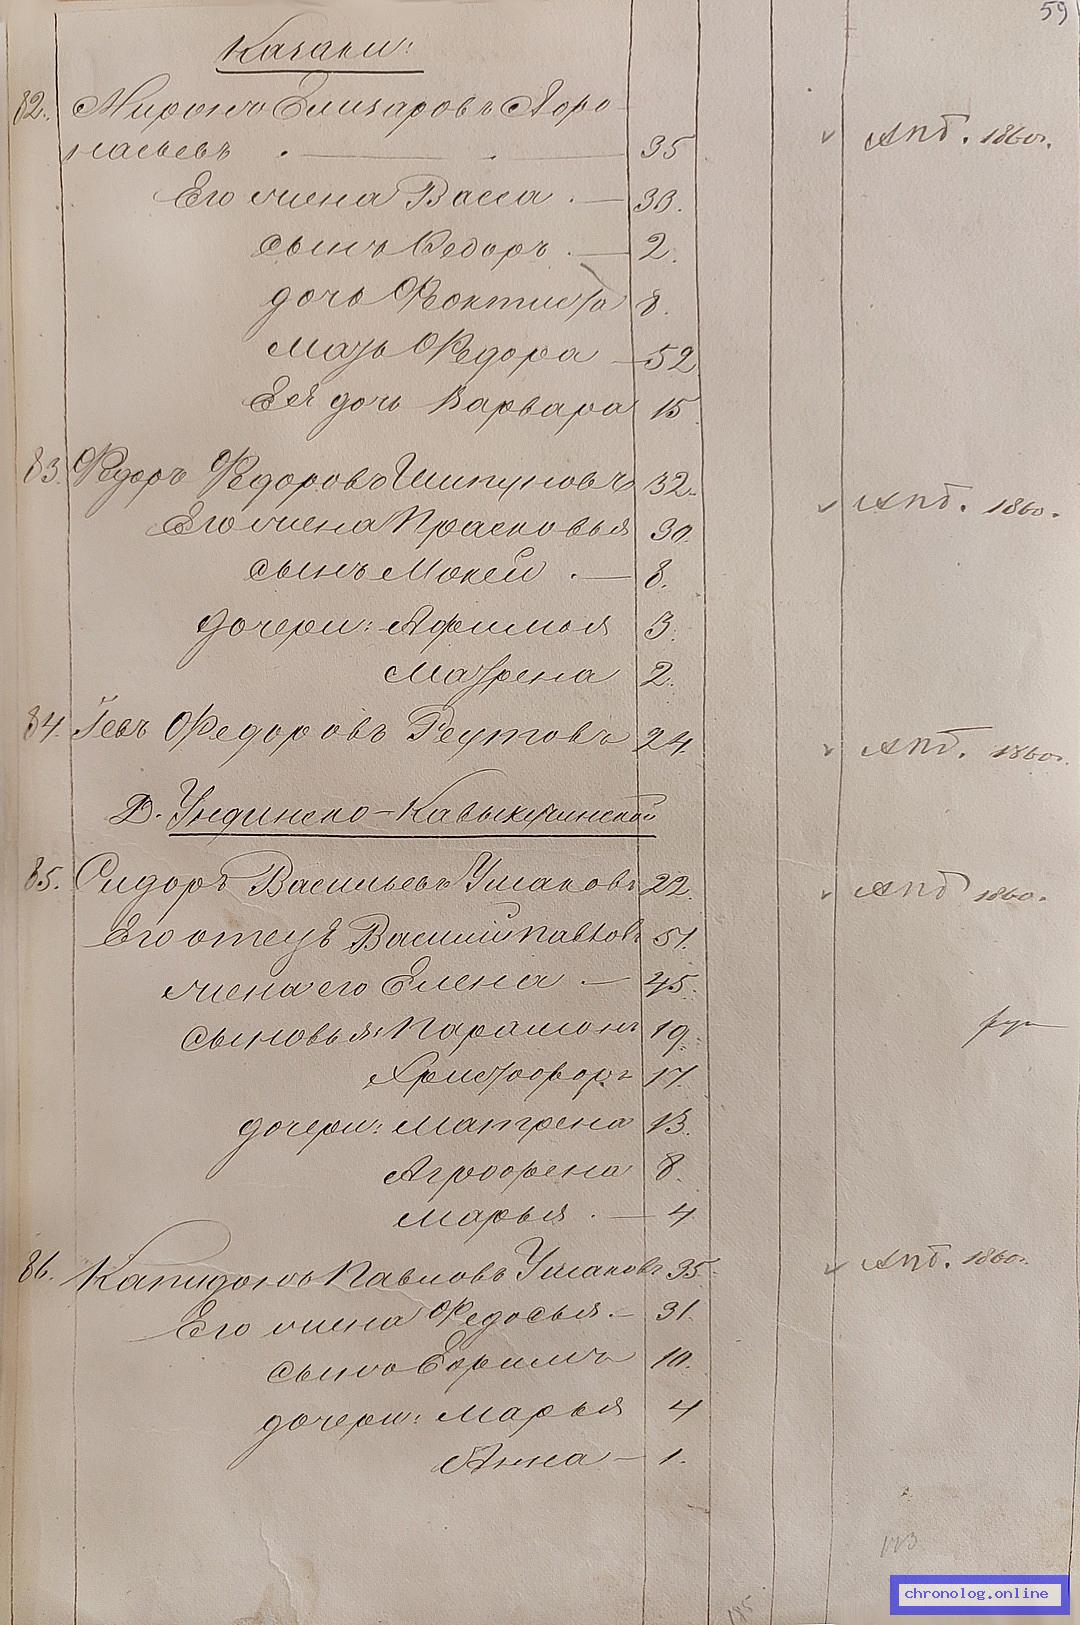 59
Казаки:
82. Миронъ Елизаровъ Афо-
насьевъ . — . — 35 Апб. 1860г.
Его жена Васса . — 30.
сынъ Федоръ . — 2.
дочь Феоктиста 8.
мать Федора — 52
Ея дочь Варвара 15
83. Федоръ Федоровъ Шипуновъ 32. Апб. 1860.
Его жена Прасковья 30.
сынъ Мокей . — 8.
дочери: Афимья 3.
Матрена 2.
84. Федоровъ Реутовъ 24. Апб. 1860г.
Д. Ундинско-Кавыкучинской
85. Сидоръ Васильевъ Ушаковъ 22. Апб 1860.
Его отецъ Василий Павловъ 51.
жена его Елена . — 45.
сыновья: Парамонъ 19.
Христофоръ 17.
дочери: Матрена 13.
Агрофена 8.
Марья . — 4
86. Капидонъ Павловъ Ушаковъ 35 Апб. 1860г.
Его жена Федосья. — 31.
сынъ Ефимъ 10.
дочери: Марья 4
Анна — 1.
chronolog.online